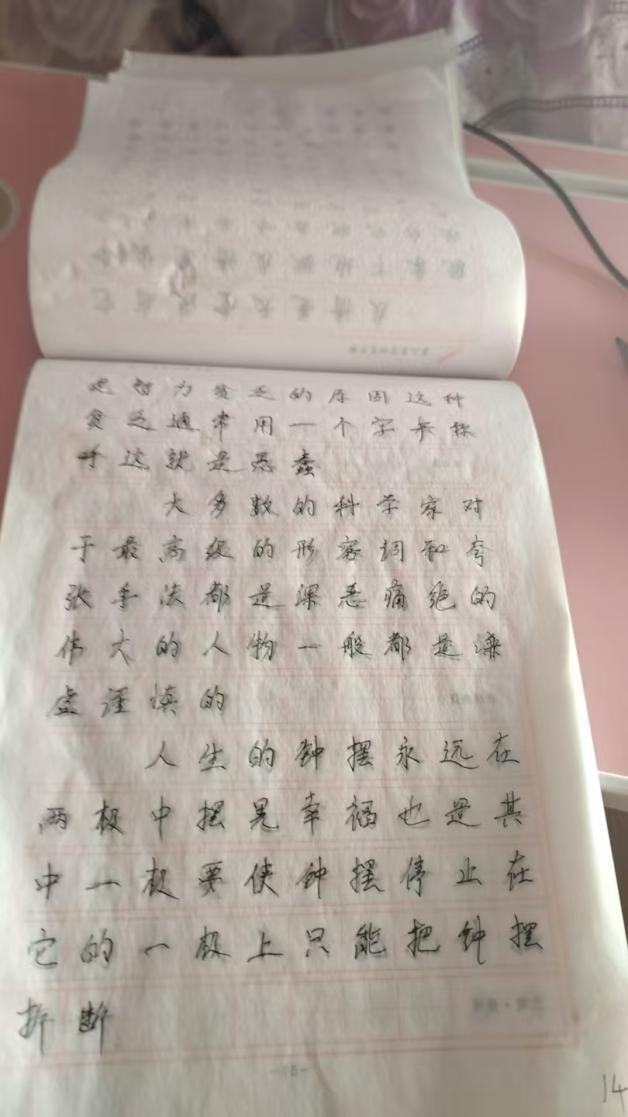 是智力贫乏的原因这种
贫乏通常用一个字来称
呼这就是愚蠢
大多数的科学家对
于最高级的形容词和夸
张手法都是深恶痛绝的
伟大的人物一般都是谦
虚谨慎的
人生的钟摆永远在
两极中摆晃幸福也是其
中一极要使钟摆停止在
它的一极上只能把钟摆
折断
14